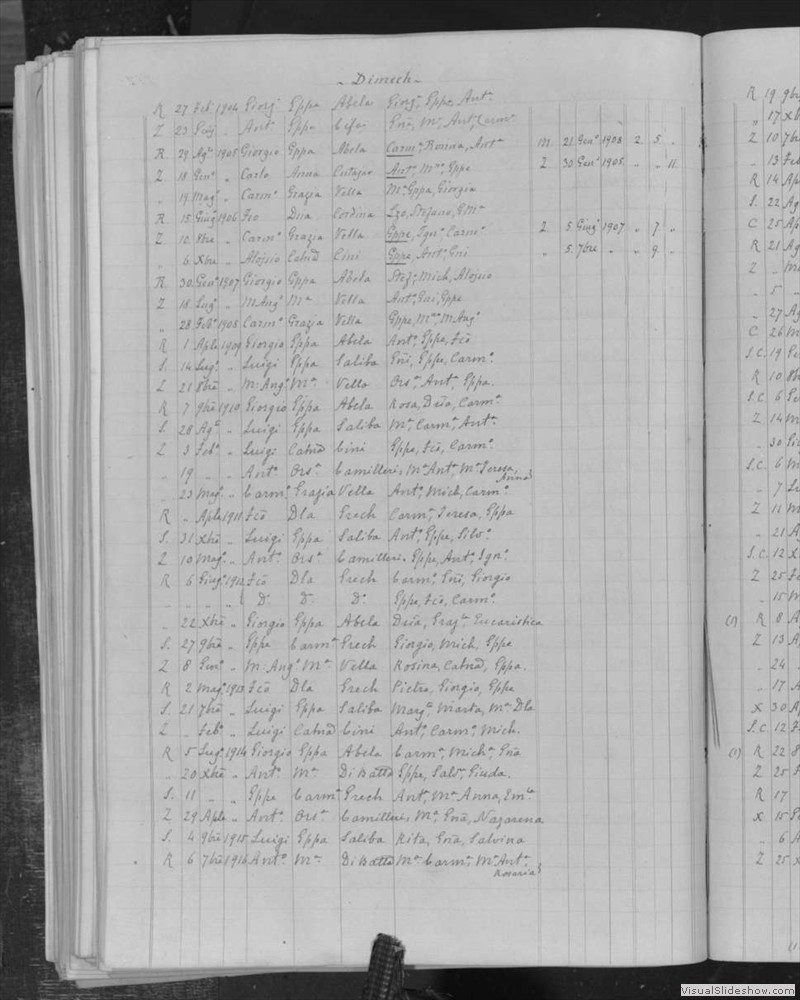 - Dimech -
R 27 Feb. 1904 Giorg. Eppa Abela Giorg. Eppe Ant.
Z 23 " Ant. Eppa M. Ant. Carm.
R. 29 Ag. 1905 Giorgio Eppa Abela Carm. Rosina, Ant. M. 21 Gen. 1908 2 5 "
Z. 18 Gen. " Carlo Anna Cutajar Ant. M. Eppe Z 30 Gen. 1905 " " 11.
" 19 Mag. " Carm. Grazia Vella M. Eppa, Giorgia
R 15 Giug. 1906 Fco Dia Cordina Lzo, Stefano, G.M.
Z 10 8bre " Carm. Grazia Vella Eppe, Ign. Carm. Z. 5 Giug. 1907 " 7 "
" 6 Xbre " Aloisio Catnd Cini Eppe, Ant. Gni " 5. 7bre " " 9 "
R. 30 Gen. 1907 Giorgio Eppa Abela Stef. Mich, Aloisio
Z 18 Lug. " M. Ang. M. Vella Ant. Gni, Eppe
" 28 Feb. 1908 Carm. Grazia Vella Eppe, M. M. Ang.
R 1 Aple 1909 Giorgio Eppa Abela Ant. Eppe, Fco
S. 14 Lug. " Luigi Eppa Saliba Gni, Eppe, Carm.
Z 21 8bre " M. Ang. M. Vella Ors. Ant. Eppa.
R 7 9bre 1910 Giorgio Eppa Abela Rosa, Carm.
S. 28 Ag. " Luigi Eppa Saliba M. Carm. Ant.
Z 3 Feb. " Luigi Catnd Cini Eppe, Fco, Carm.
" 19 " " Ant. Ors. Camilleri M. Ant. M. Teresa, Anna
" 23 Mag. " Carm. Grazia Vella Ant. Mich, Carm.
R " Aple 1911 Fco Dla Grech Carm. Teresa, Eppa
S. 31 Xbre " Luigi Eppa Saliba Ant. Eppe, Filo.
Z 10 Mag. " Ant. Ors. Camilleri Eppe, Ant. Ign.
R 6 Giug. 1912 Fco Dla Grech Carm. Gni, Giorgio
" " " " D. D. D. Eppe, Fco, Carm.
" 22 Xbre " Giorgio Eppa Abela Graz. Eucaristica
S. 27 9bre " Eppe Carm. Grech Giorgio, Mich, Eppe
Z 8 Gen. " M. Ang. M. Vella Rosina, Catnd, Eppa.
R 2 Mag. 1913 Fco Dla Grech Pietro, Giorgio, Eppe
S. 21 7bre " Luigi Eppa Saliba Marg. Marta, M. Dla
Z " Feb. " Luigi Catnd Cini Ant. Carm. Mich.
R 5 Lug. 1914 Giorgio Eppa Abela Carm. Mich. Gna
" 20 Xbre " Ant. M. DiBatta Eppe, Salv. Giuda.
S. 11 " " Eppe Carm. Grech Ant, M. Anna, Em.
Z 29 Aple " Ant. Ors. Camilleri M. Gna, Nazarena
S. 4 9bre 1915 Luigi Eppa Saliba Rita, Gna, Salvina
R 6 7bre 1916 Ant. M. DiBatta M. Carm. M. Ant. Rosaria
R 19 9b
" 17 Xb
Z 10 7bre
" 13 Fe
R 14 Ap
S. 22 Ag
C 25 Ap
R 21 Ag
Z " M
" 5 "
" 27 Ag
C 26 M
S.C. 19 Ge
R 10 8b
S.C. 6
Z 14 M
" 30
S.C. 6 M
" 7 L
Z 11 M
" 21 A
S.C. 12 X
Z 25 F
" 15 M
(1) R 8 A
Z 13 A
" 24
" 17 A
X 30 A
S.C. 12 F
(1) R 22 8
Z 25
R 17
X 15
" 6 A
Z 25 X
VisualSlideshow.com